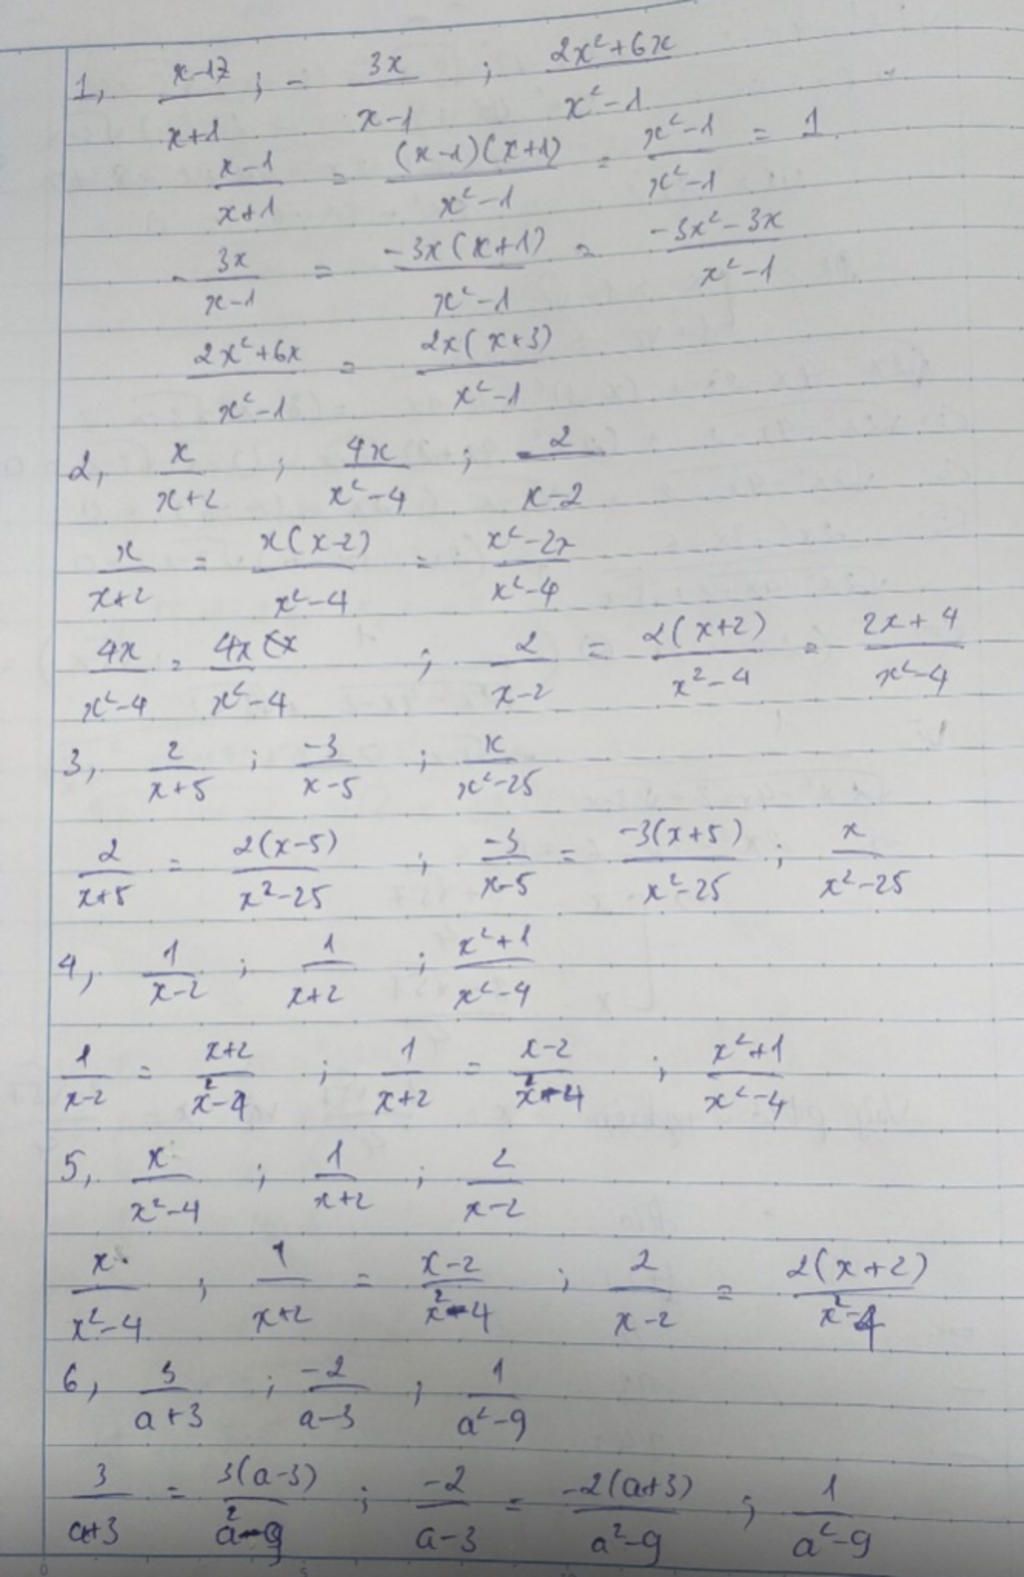 1, (x-17)/(x+1) ; - 3x/(x-1) ; (2x²+6x)/(x²-1)
(x-1)/(x+1) = (x-1)(x+1)/(x²-1) = (x²-1)/(x²-1) = 1
- 3x/(x-1) = -3x(x+1)/(x²-1) = (-3x²-3x)/(x²-1)
(2x²+6x)/(x²-1) = 2x(x+3)/(x²-1)
2, x/(x+2) ; 4x/(x²-4) ; 2/(x-2)
x/(x+2) = x(x-2)/(x²-4) = (x²-2x)/(x²-4)
4x/(x²-4) = 4x/(x²-4) ; 2/(x-2) = 2(x+2)/(x²-4) = (2x+4)/(x²-4)
3, 2/(x+5) ; -3/(x-5) ; x/(x²-25)
2/(x+5) = 2(x-5)/(x²-25) ; -3/(x-5) = -3(x+5)/(x²-25) ; x/(x²-25)
4, 1/(x-2) ; 1/(x+2) ; (x²+1)/(x²-4)
1/(x-2) = (x+2)/(x²-4) ; 1/(x+2) = (x-2)/(x²-4) ; (x²+1)/(x²-4)
5, x/(x²-4) ; 1/(x+2) ; 2/(x-2)
x/(x²-4) ; 1/(x+2) = (x-2)/(x²-4) ; 2/(x-2) = 2(x+2)/(x²-4)
6, 3/(a+3) ; -2/(a-3) ; 1/(a²-9)
3/(a+3) = 3(a-3)/(a²-9) ; -2/(a-3) = -2(a+3)/(a²-9) ; 1/(a²-9)